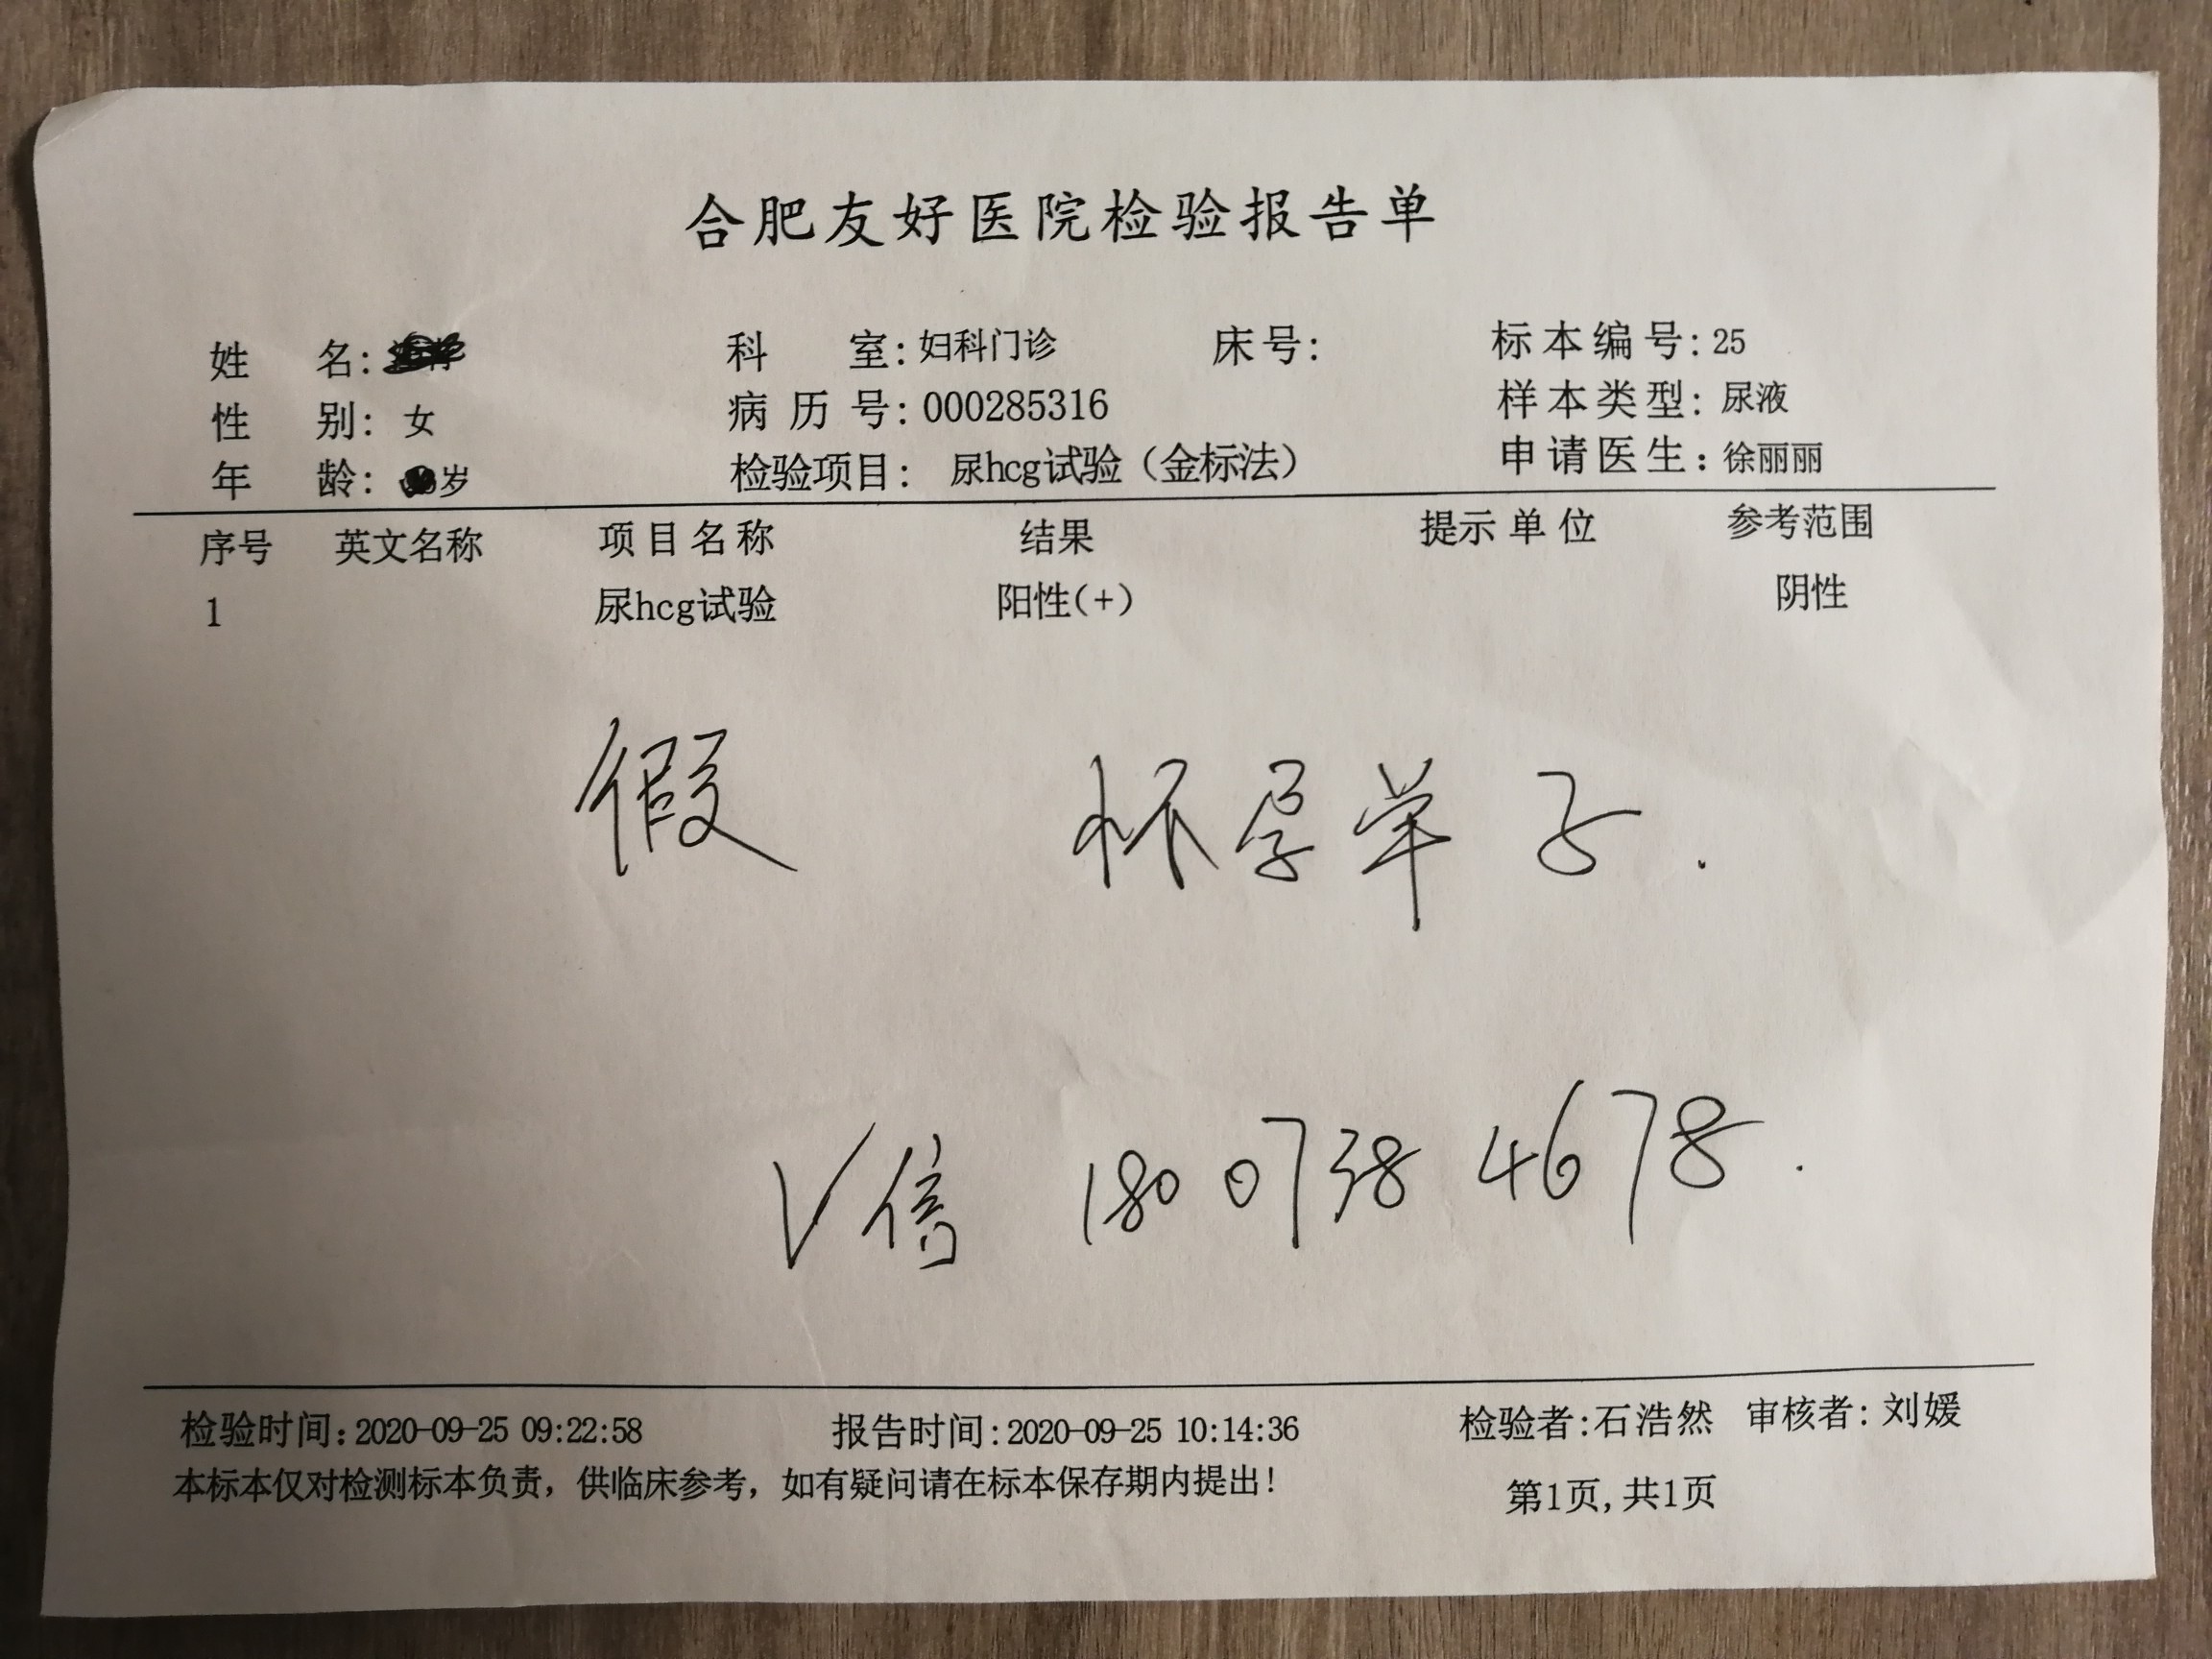 合肥友好医院检验报告单
姓 名: 科 室: 妇科门诊 床号: 标本编号: 25
性 别: 女 病 历 号: 000285316 样本类型: 尿液
年 龄: 岁 检验项目: 尿hcg试验（金标法） 申请医生: 徐丽丽
序号 英文名称 项目名称 结果 提示 单位 参考范围
1 尿hcg试验 阳性(+) 阴性
假 怀孕单子.
V信 180 0738 4678.
检验时间: 2020-09-25 09:22:58 报告时间: 2020-09-25 10:14:36 检验者: 石浩然 审核者: 刘媛
本标本仅对检测标本负责，供临床参考，如有疑问请在标本保存期内提出! 第1页, 共1页